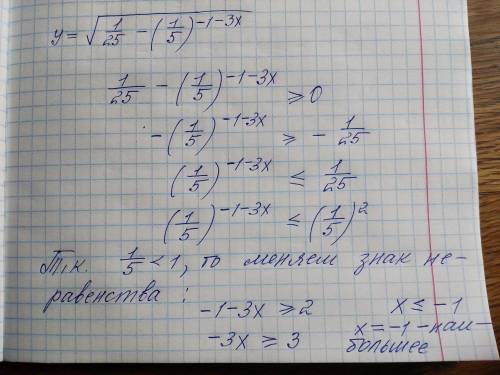 y = √(1/25 − (1/5)^(−1−3x))
1/25 − (1/5)^(−1−3x) ≥ 0
−(1/5)^(−1−3x) ≥ − 1/25
(1/5)^(−1−3x) ≤ 1/25
(1/5)^(−1−3x) ≤ (1/5)^2
Т.к. 1/5 < 1, то меняем знак не-
равенства:
−1−3x ≥ 2
−3x ≥ 3
x ≤ −1
x = −1 - наи-
большее